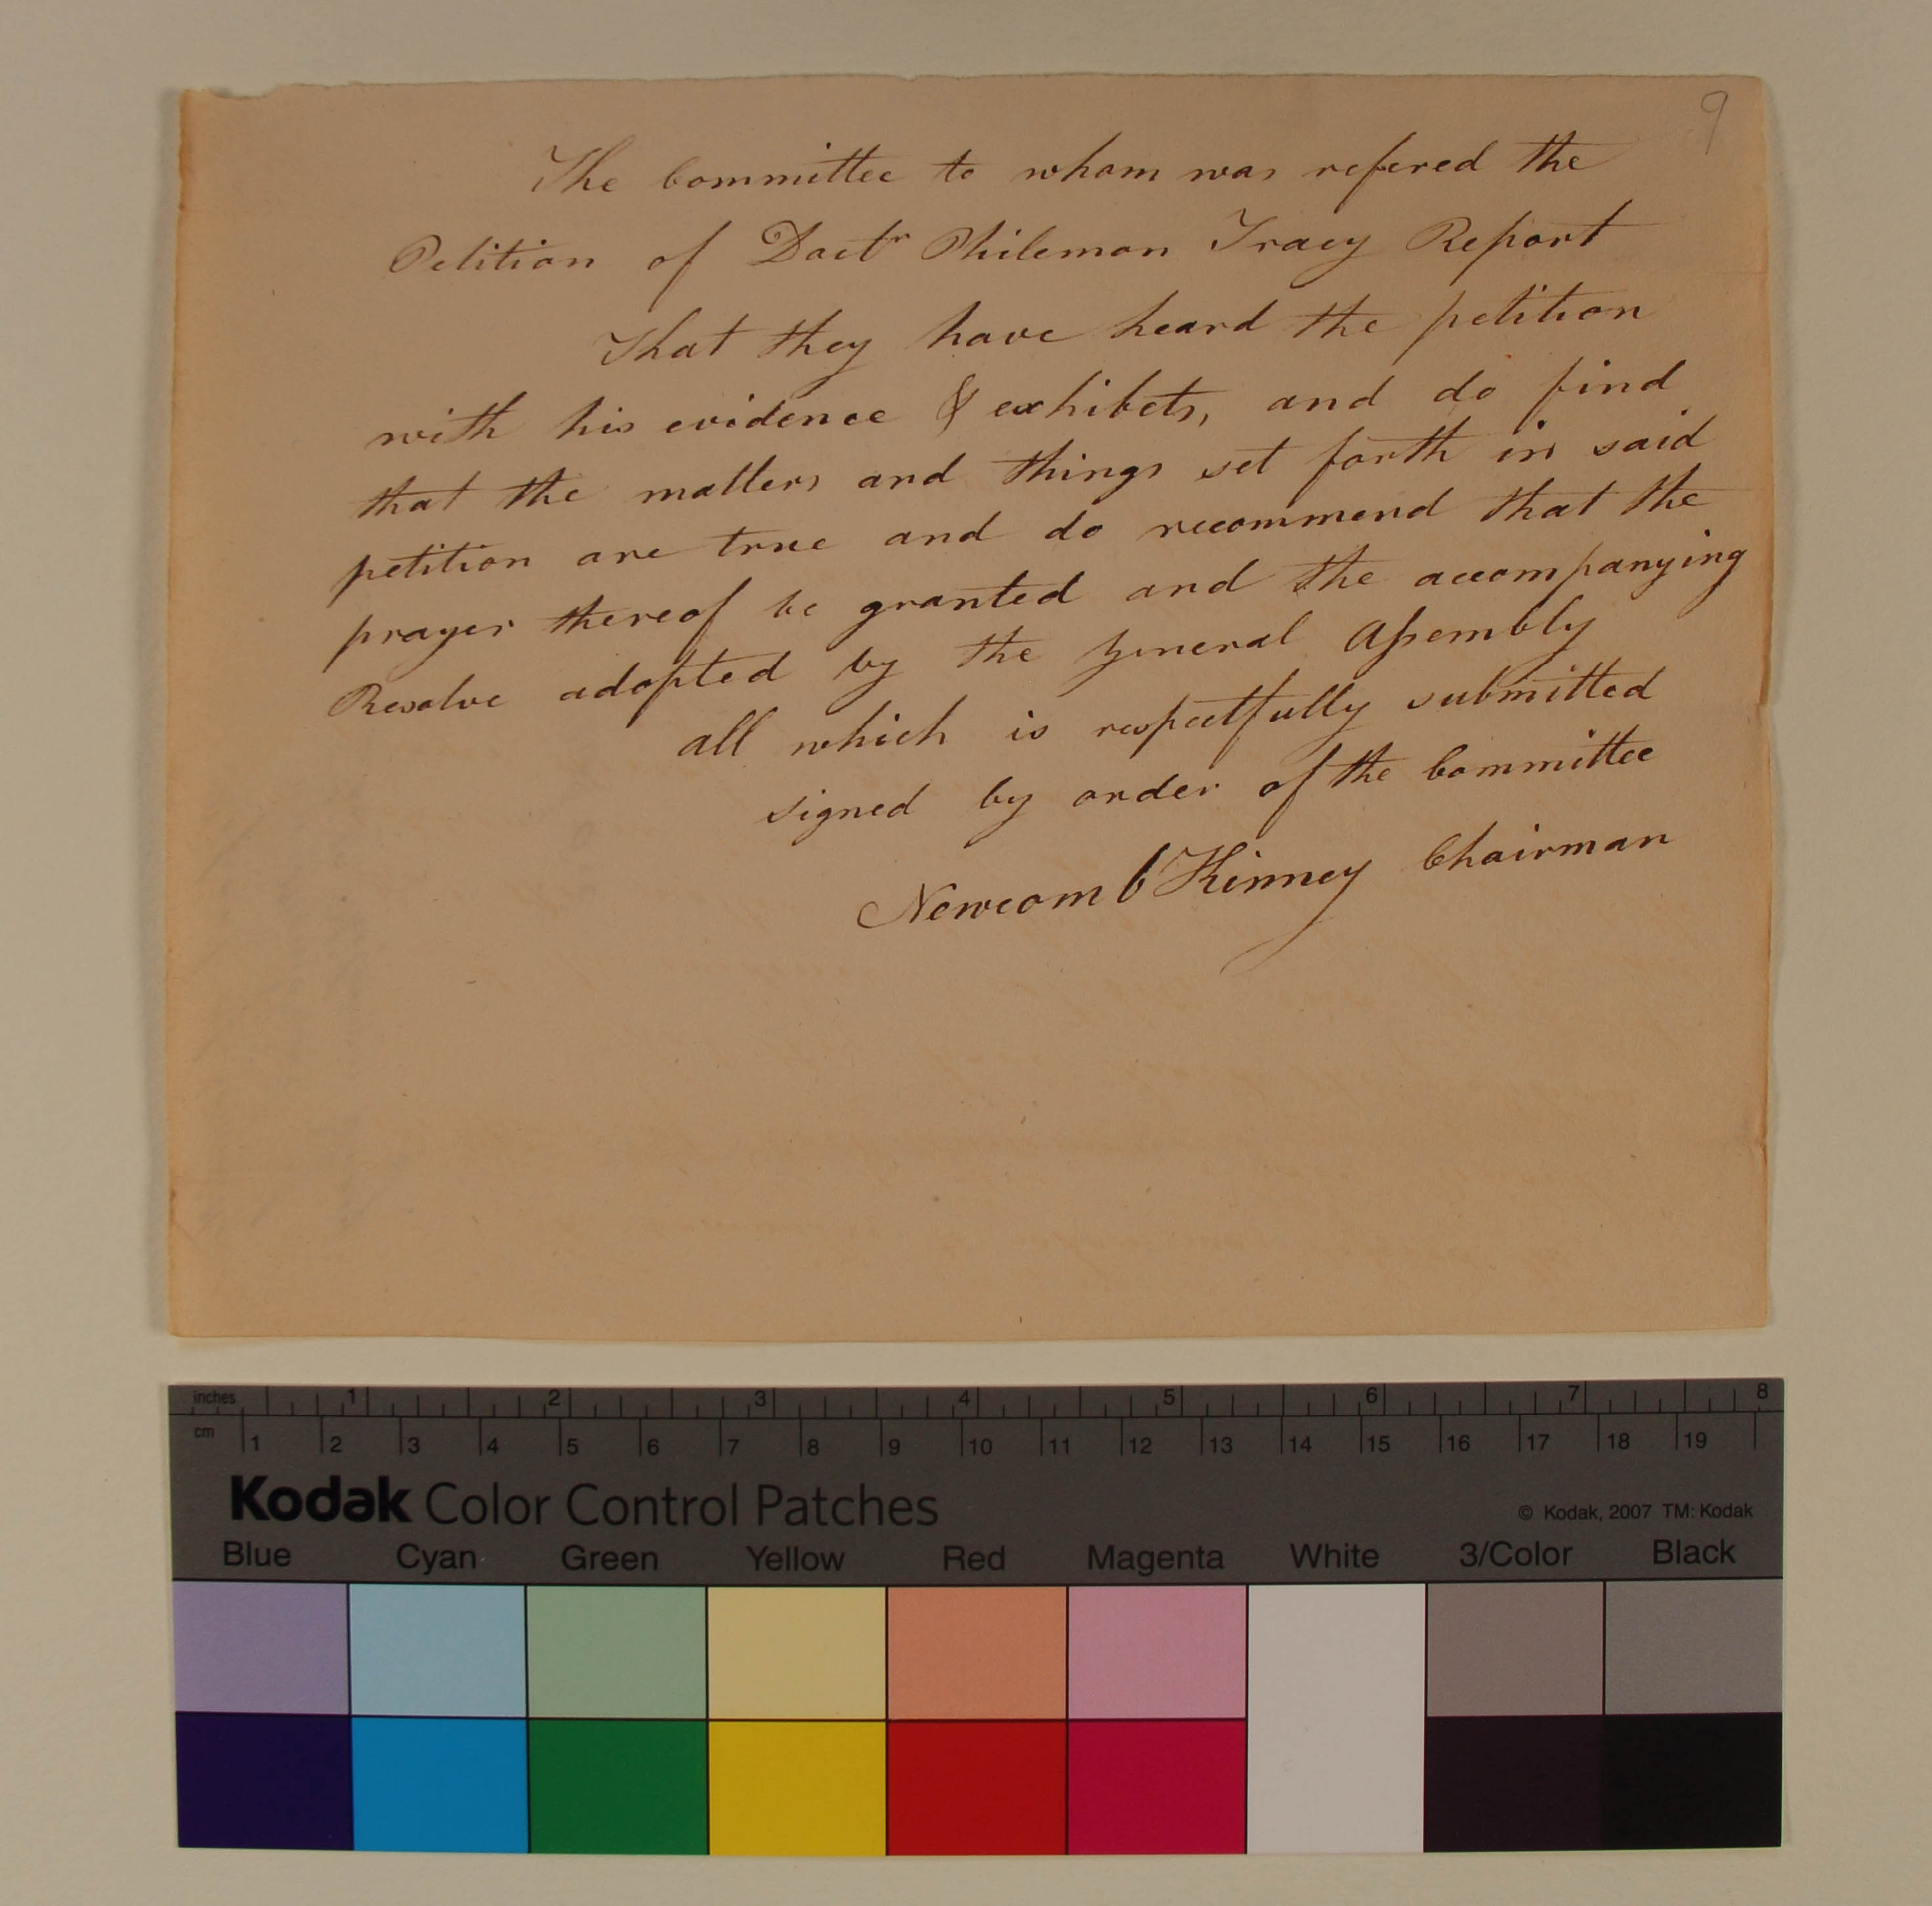 9
The Committee to whom was refered the
Petition of Doctr Philemon Tracy Report
That they have heard the petition
with his evidence & exhibets, and do find
that the matters and things set forth in said
petition are true and do recommend that the
prayer thereof be granted and the accompanying
Resolve adopted by the General Assembly
all which is respectfully submitted
signed by order of the Committee
Newcomb Kinney Chairman
inches 1 2 3 4 5 6 7 8
cm 1 2 3 4 5 6 7 8 9 10 11 12 13 14 15 16 17 18 19
Kodak Color Control Patches
© Kodak, 2007 TM: Kodak
Blue Cyan Green Yellow Red Magenta White 3/Color Black